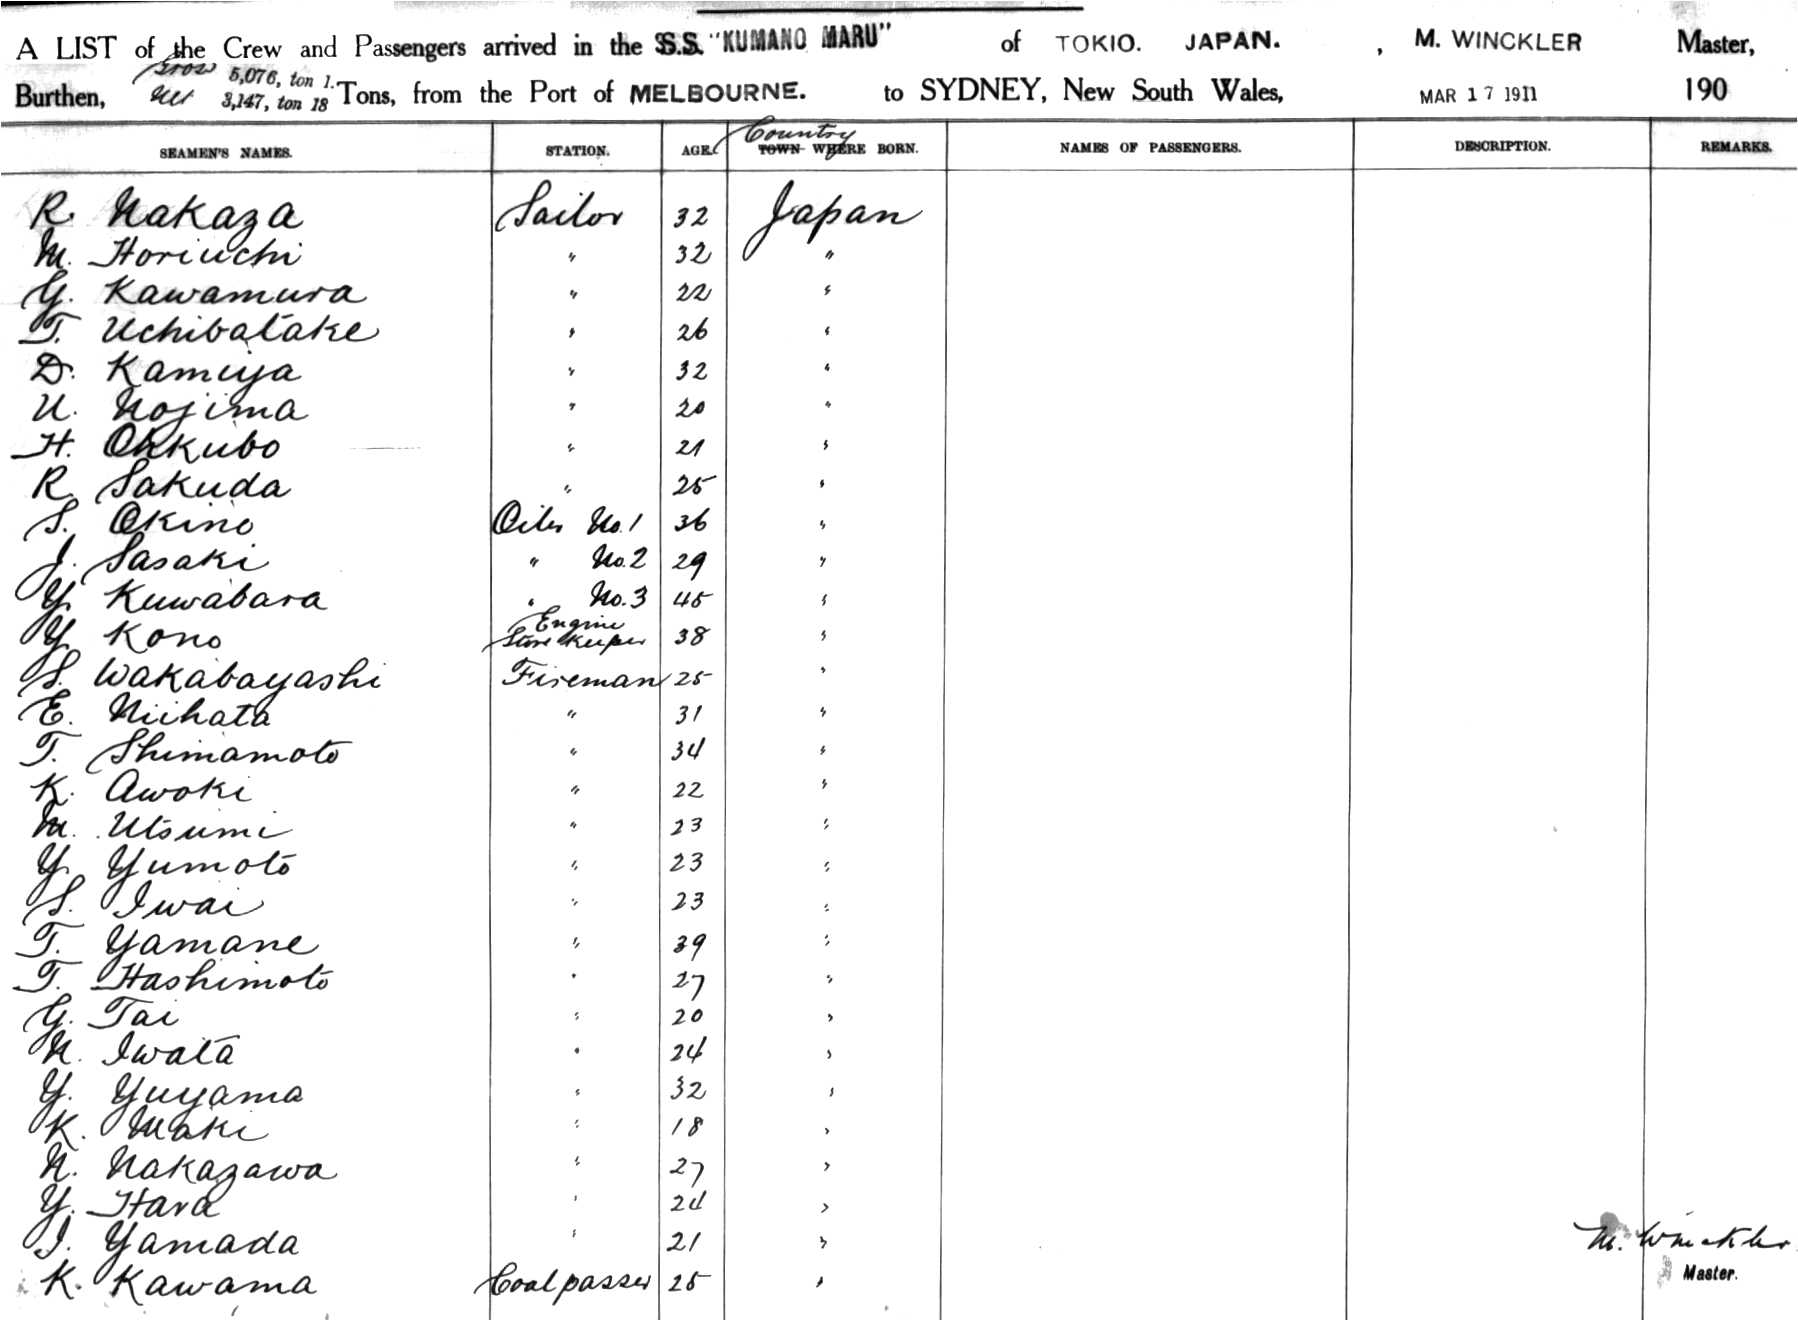 A LIST of the Crew and Passengers arrived in the S.S. "KUMANO MARU" of TOKIO. JAPAN. , M. WINCKLER Master,
Burthen, Gross 5,076, ton 1. Net 3,147, ton 18 Tons, from the Port of MELBOURNE. to SYDNEY, New South Wales, MAR 17 1911 190
SEAMEN'S NAMES. STATION. AGE. Country TOWN WHERE BORN. NAMES OF PASSENGERS. DESCRIPTION. REMARKS.
R. Nakaza Sailor 32 Japan
M. Horiuchi " 32 "
G. Kawamura " 22 "
T. Uchibatake " 26 "
D. Kamiya " 32 "
U. Nojima " 20 "
H. Ohkubo " 21 "
R. Sakuda " 25 "
S. Okino Oiler No.1 36 "
J. Sasaki " No.2 29 "
Y. Kuwabara " No.3 45 "
Y. Kono Engine Store Keeper 38 "
S. Wakabayashi Fireman 25 "
E. Niihata " 31 "
T. Shimamoto " 34 "
K. Awoki " 22 "
M. Utsumi " 23 "
Y. Yumoto " 23 "
S. Iwai " 23 "
T. Yamane " 39 "
T. Hashimoto " 27 "
G. Tai " 20 "
N. Iwata " 24 "
Y. Yuyama " 32 "
K. Maki " 18 "
N. Nakazawa " 27 "
Y. Hara " 24 "
I. Yamada " 21 "
M. Winckler
Master.
K. Kawama Coal passer 25 "